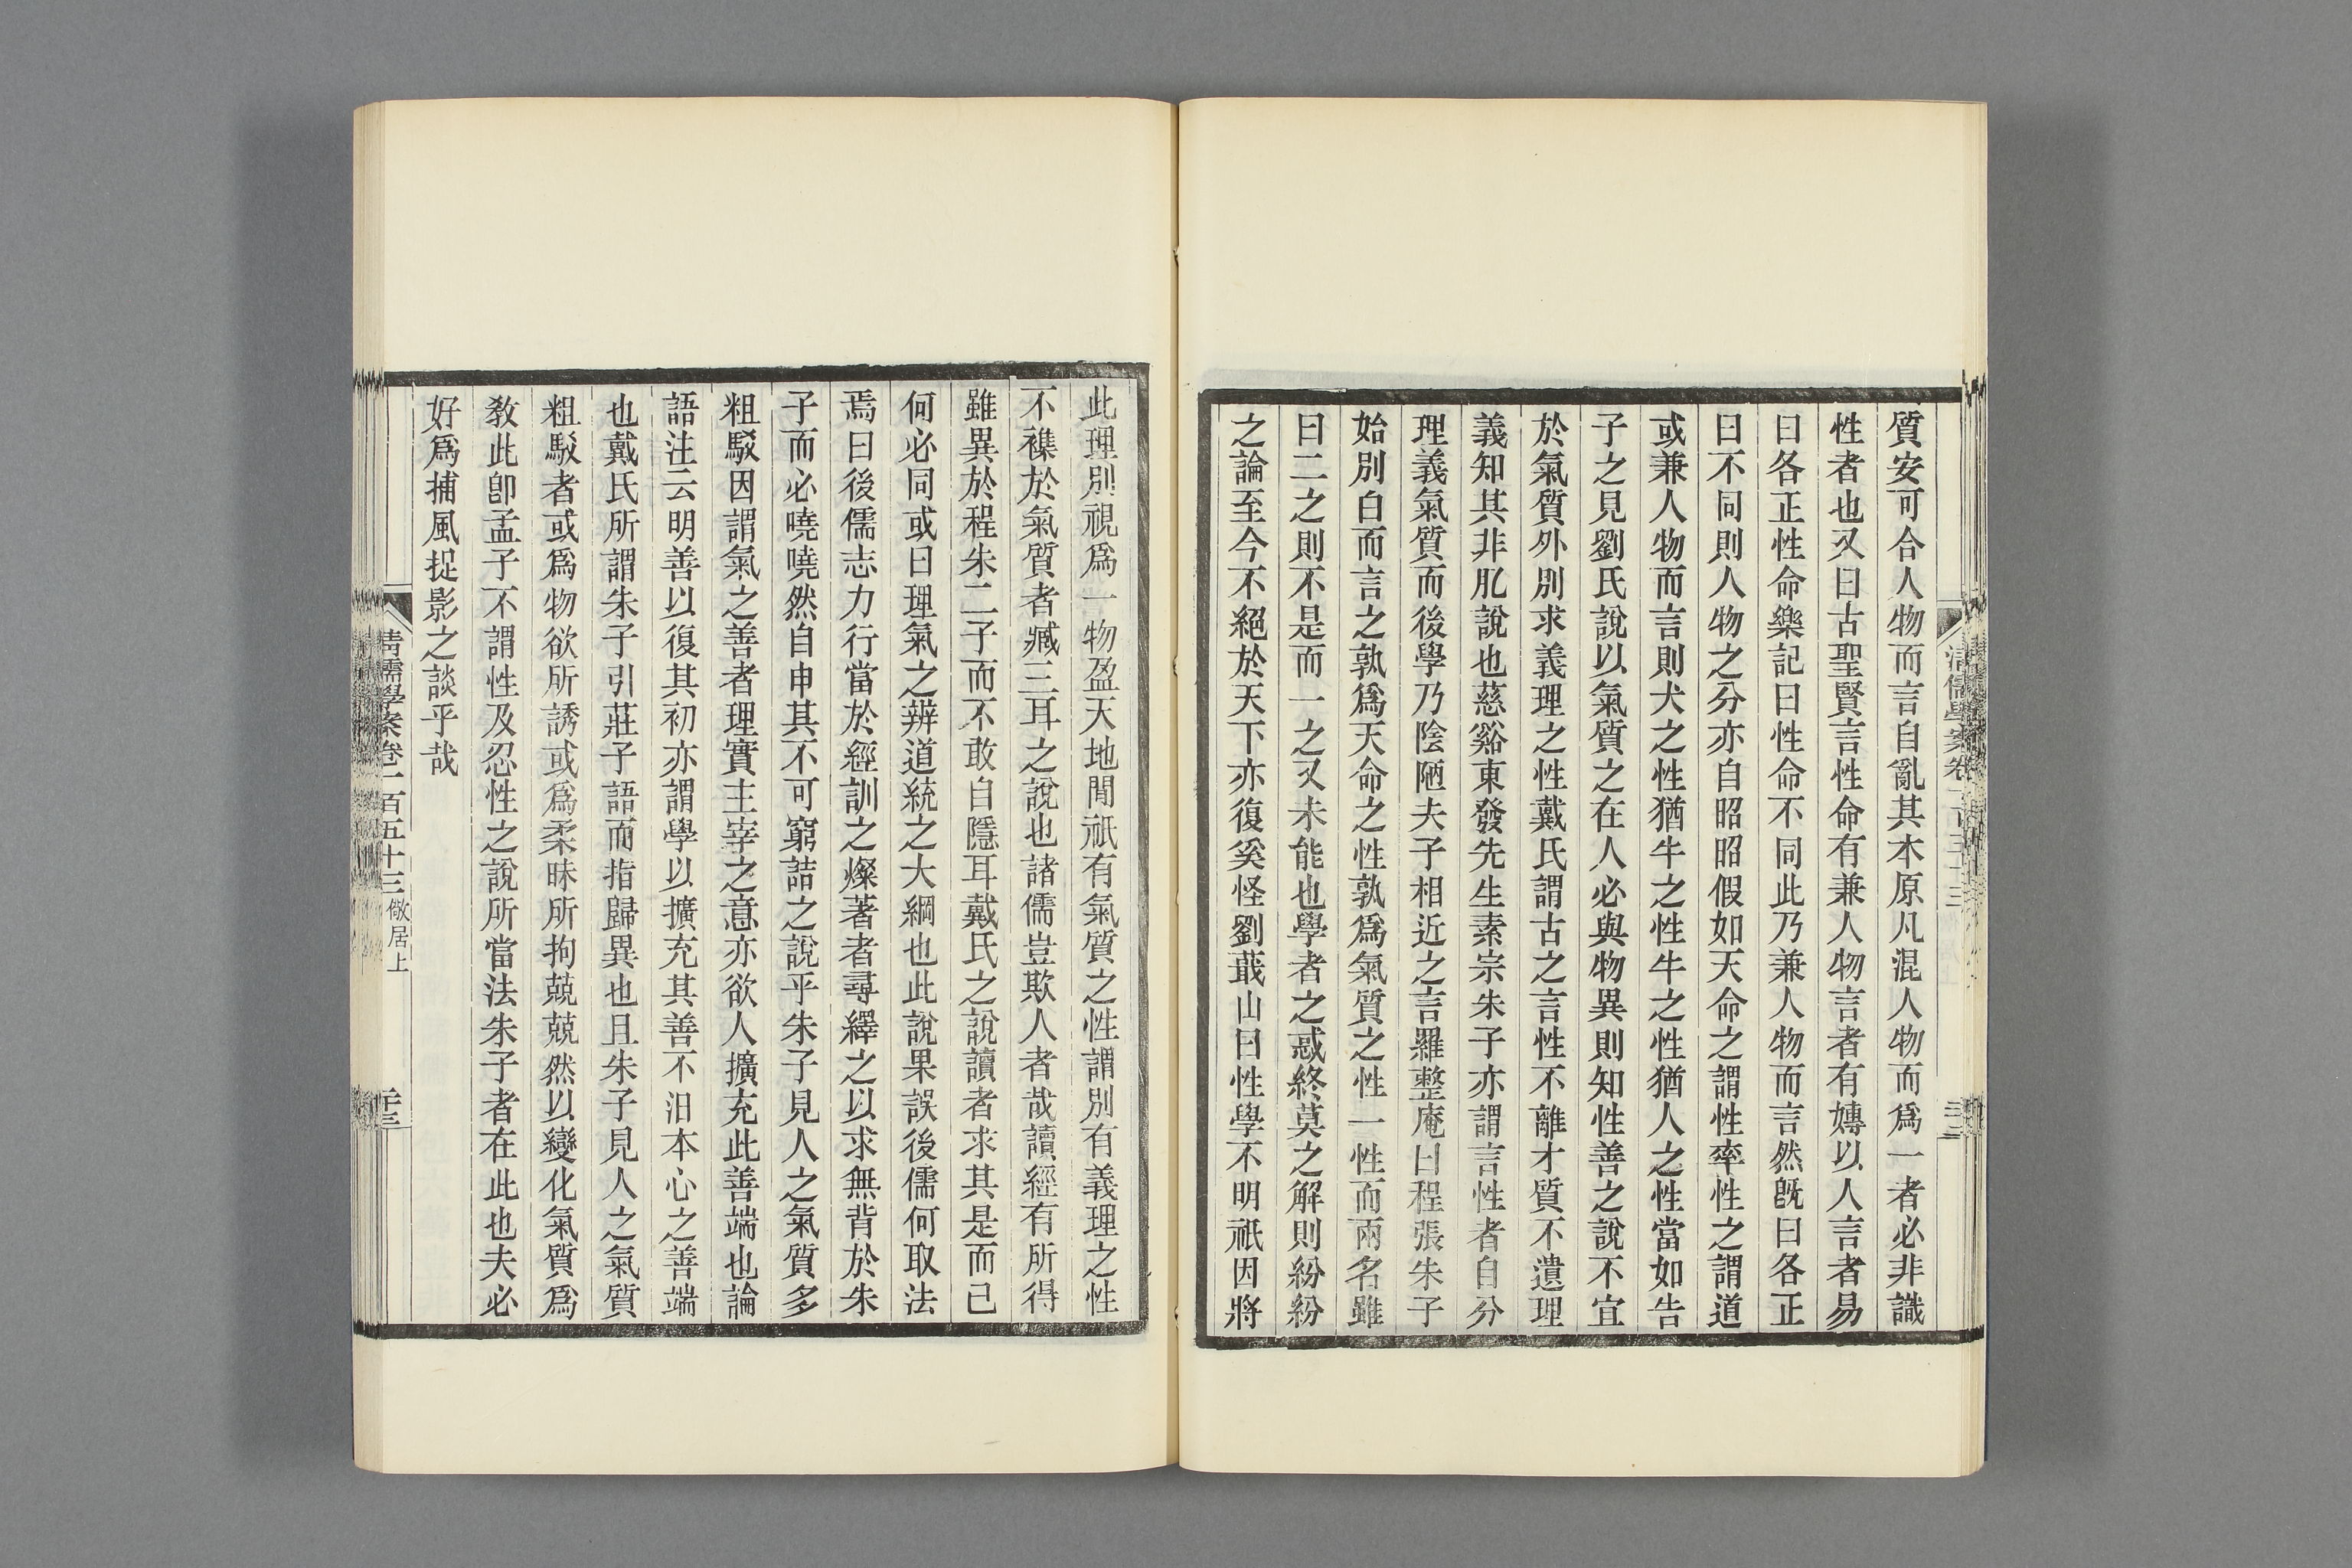 質安可合人物而言自亂其本原凡混人物而爲一者必非識
性者也又曰古聖賢言性命有兼人物言者有專以人言者易
曰各正性命樂記曰性命不同此乃兼人物而言然旣曰各正
曰不同則人物之分亦自昭昭假如天命之謂性率性之謂道
或兼人物而言則犬之性猶牛之性牛之性猶人之性當如告
子之見劉氏說以氣質之在人必與物異則知性善之說不宜
於氣質外別求義理之性戴氏謂古之言性不離才質不遺理
義知其非肊說也慈谿東發先生素宗朱子亦謂言性者自分
理義氣質而後學乃陰陋夫子相近之言羅整庵曰程張朱子
始別白而言之孰爲天命之性孰爲氣質之性一性而兩名雖
曰二之則不是而一之又未能也學者之惑終莫之解則紛紛
之論至今不絕於天下亦復奚怪劉蕺山曰性學不明祇因將
此理別視爲一物盈天地閒祇有氣質之性謂別有義理之性
不襍於氣質者臧三耳之說也諸儒豈欺人者哉讀經有所得
雖異於程朱二子而不敢自隱耳戴氏之說讀者求其是而已
何必同或曰理氣之辨道統之大綱也此說果誤後儒何取法
焉曰後儒志力行當於經訓之燦著者尋繹之以求無背於朱
子而必嘵嘵然自申其不可窮詰之說乎朱子見人之氣質多
粗駁因謂氣之善者理實主宰之意亦欲人擴充此善端也論
語注云明善以復其初亦謂學以擴充其善不汨本心之善端
也戴氏所謂朱子引莊子語而指歸異也且朱子見人之氣質
粗駁者或爲物欲所誘或爲柔昧所拘兢兢然以變化氣質爲
敎此卽孟子不謂性及忍性之說所當法朱子者在此也夫必
好爲捕風捉影之談乎哉
清儒學案卷二百五十三 儆居上